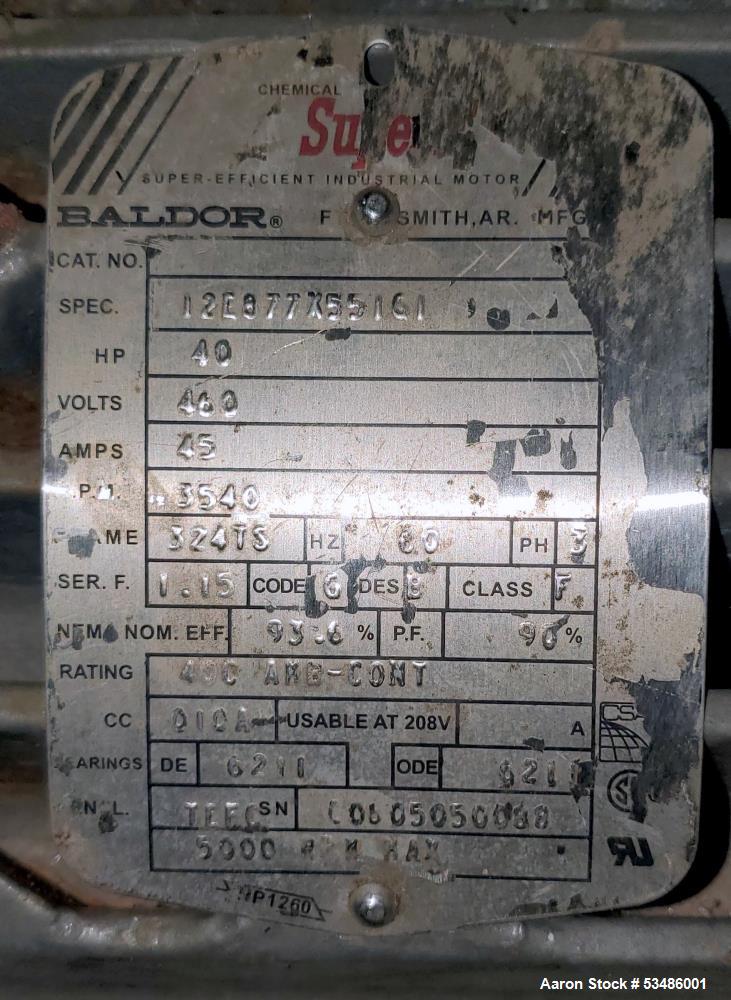 CHEMICAL
SUPER-EFFICIENT INDUSTRIAL MOTOR
BALDOR® SMITH, AR. MFG
CAT. NO.
SPEC. 12E877X551G1
HP 40
VOLTS 460
AMPS 45
3540
324TS HZ 60 PH 3
SER. F. 1.15 CODE G DES B CLASS F
NEMA NOM. EFF. 93.6 % P.F. 90 %
RATING 40C AMB-CONT
CC 010A USABLE AT 208V A
DE 6211 ODE
SN
5000 RPM MAX
Aaron Stock # 53486001